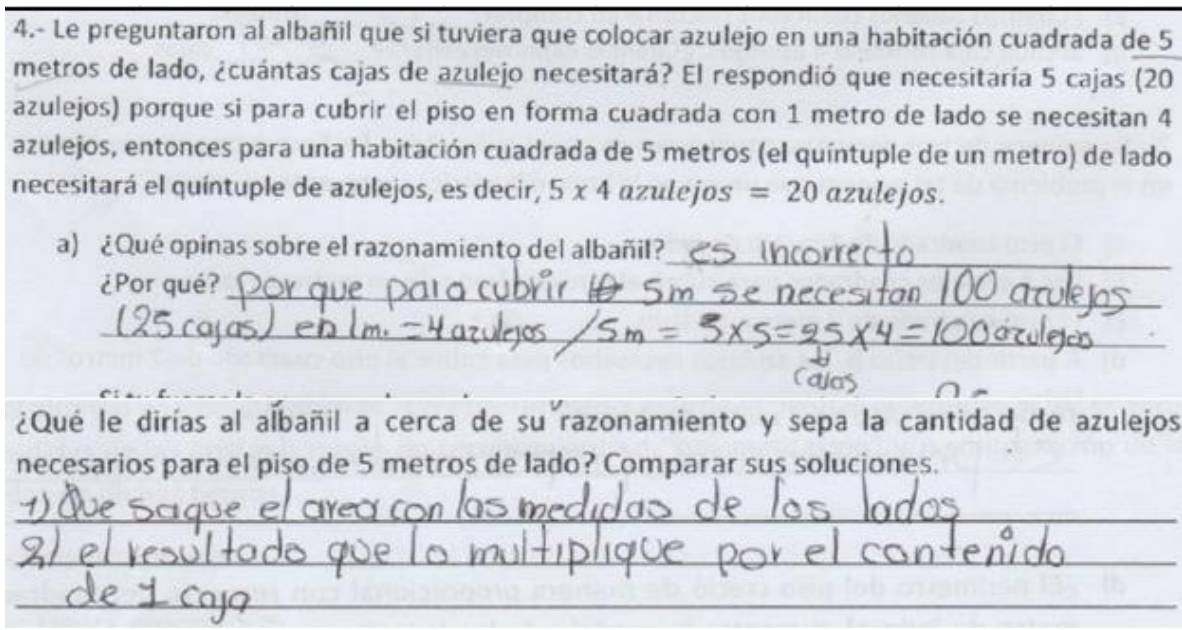 4.- Le preguntaron al albañil que si tuviera que colocar azulejo en una habitación cuadrada de 5
metros de lado, ¿cuántas cajas de azulejo necesitará? El respondió que necesitaría 5 cajas (20
azulejos) porque si para cubrir el piso en forma cuadrada con 1 metro de lado se necesitan 4
azulejos, entonces para una habitación cuadrada de 5 metros (el quíntuple de un metro) de lado
necesitará el quíntuple de azulejos, es decir, 5 x 4 azulejos = 20 azulejos.
a) ¿Qué opinas sobre el razonamiento del albañil? es incorrecto
¿Por qué? por que para cubrir 5m se necesitan 100 azulejos
(25 cajas) en 1m. = 4 azulejos / 5m = 5x5=25x4=100 azulejos
cajas
¿Qué le dirías al albañil a cerca de su razonamiento y sepa la cantidad de azulejos
necesarios para el piso de 5 metros de lado? Comparar sus soluciones.
1) Que saque el area con las medidas de los lados
2) el resultado que lo multiplique por el contenido
de 1 caja